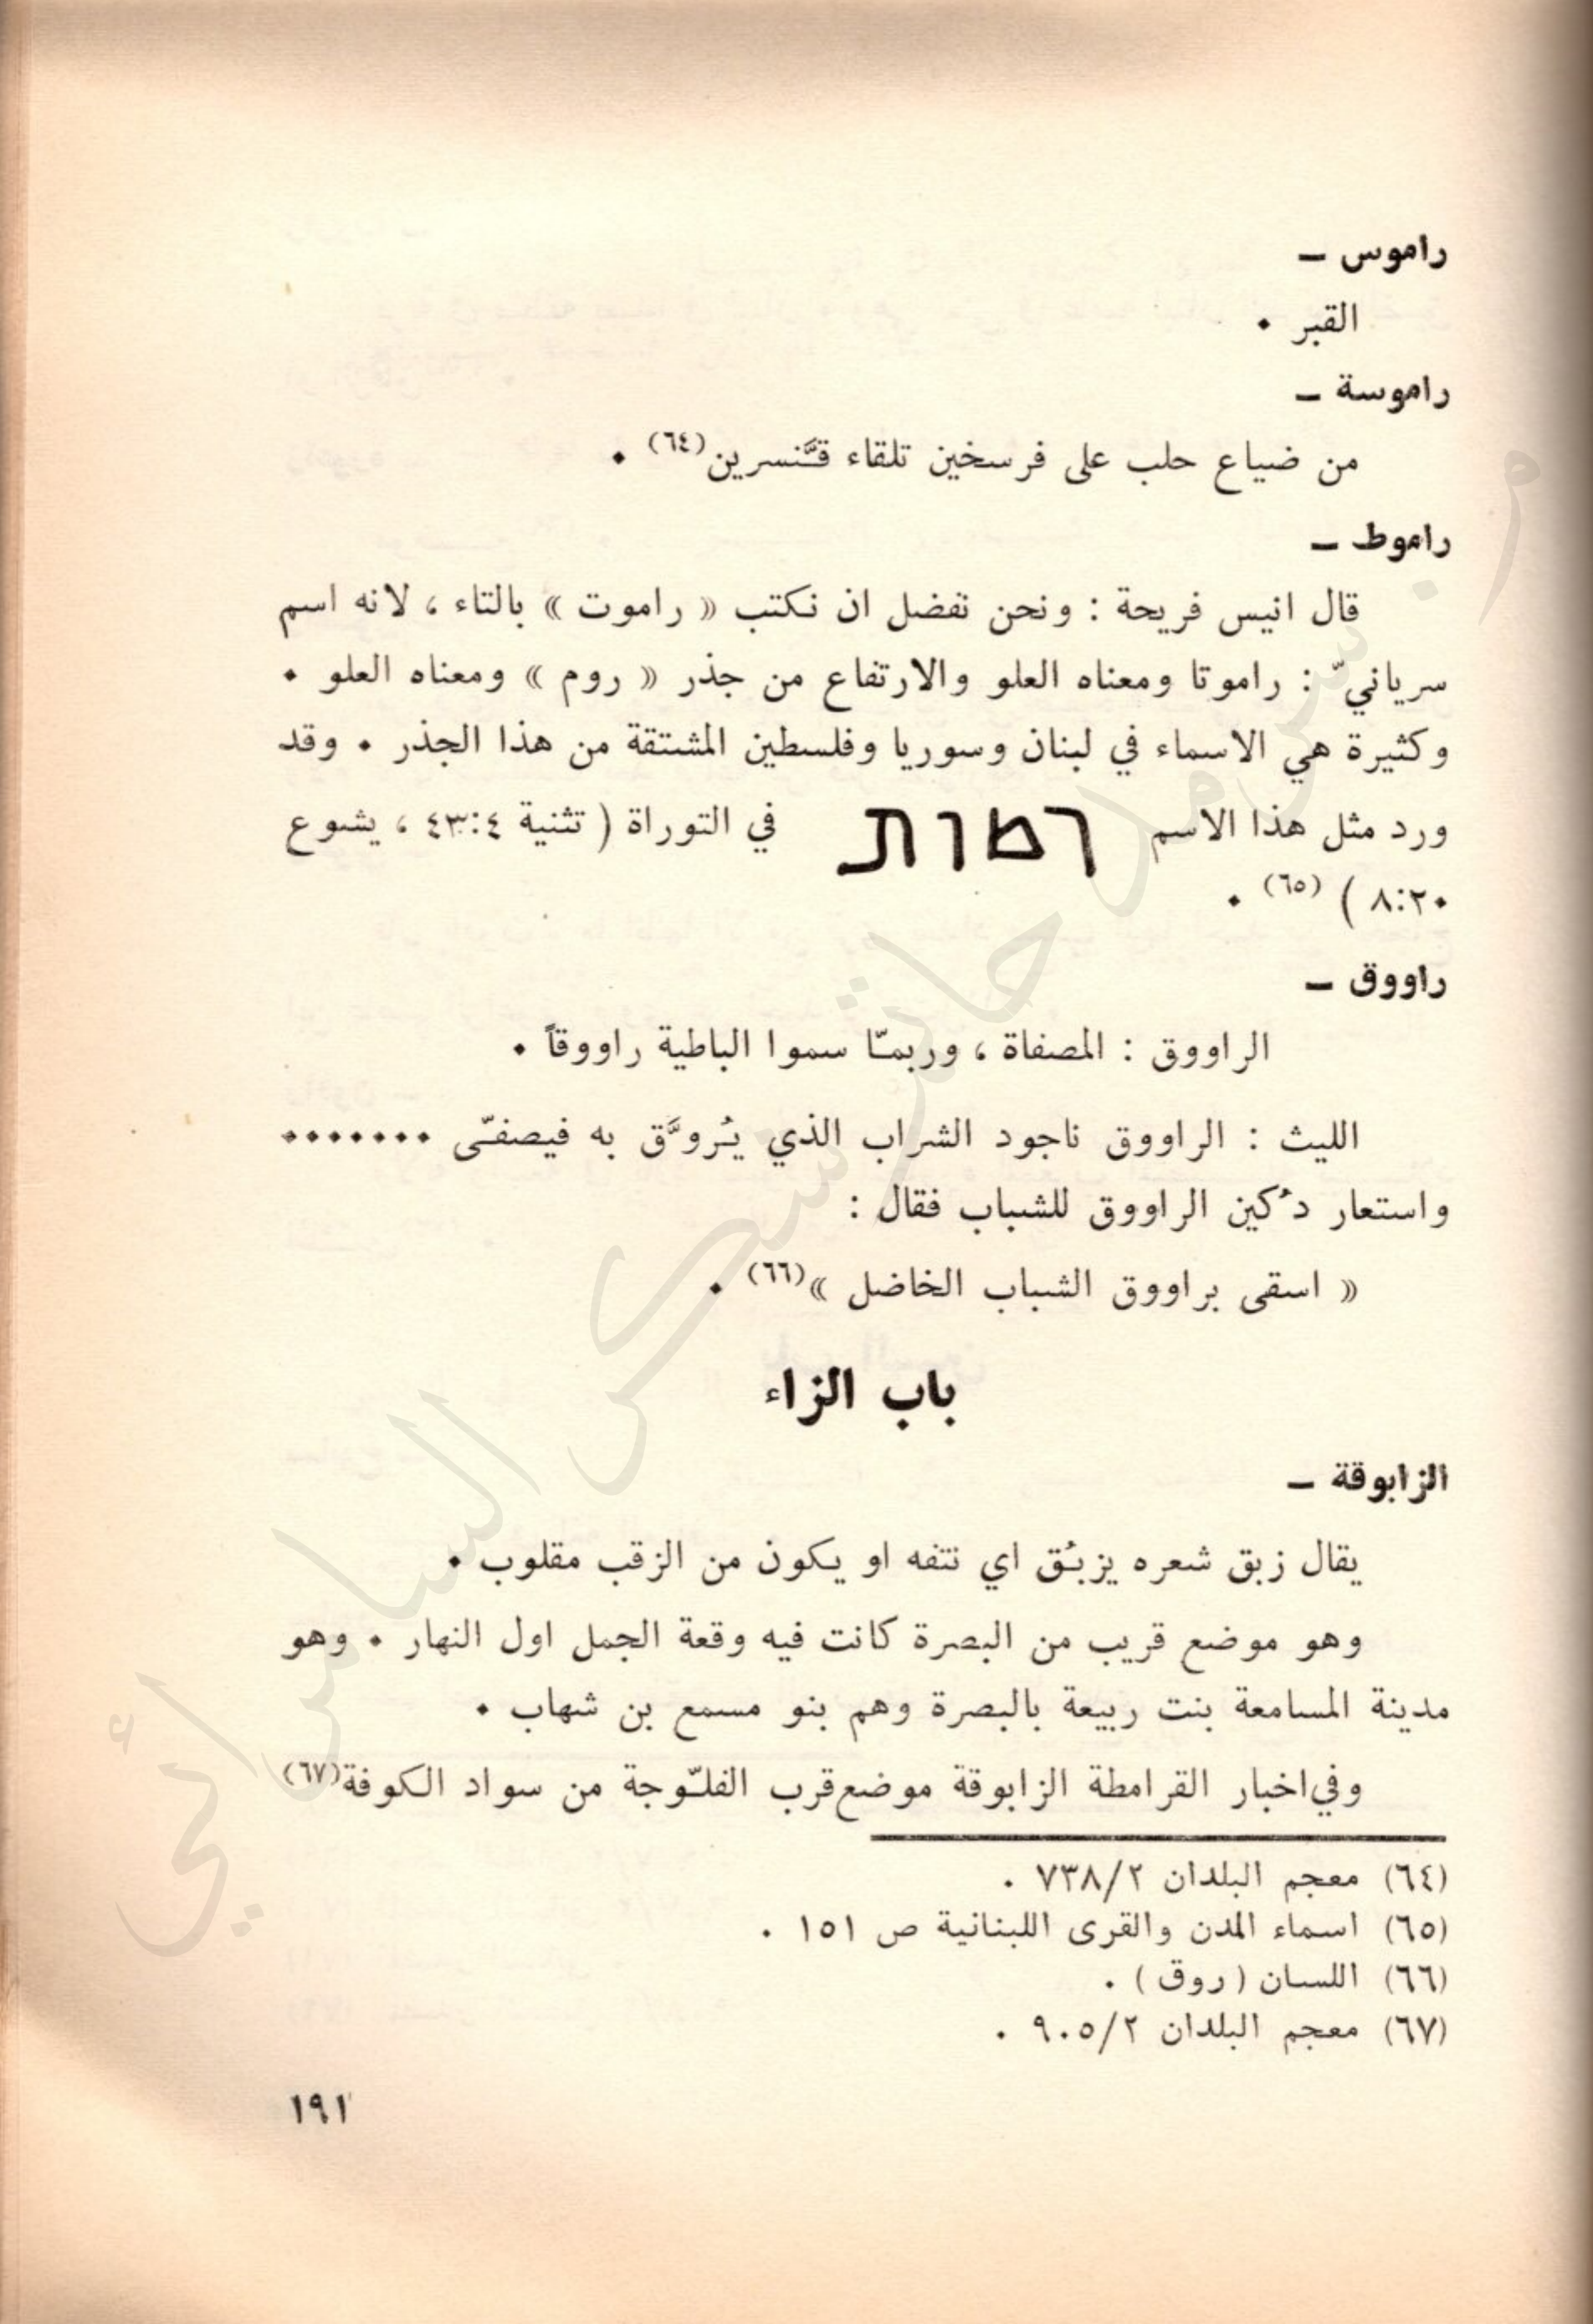 راموس –
القبر .
راموسة –
من ضياع حلب على فرسخين تلقاء قنَّسرين(٦٤) .
راموط –
قال انيس فريحة : ونحن نفضل ان نكتب « راموت » بالتاء ، لانه اسم
سريانيّ : راموتا ومعناه العلو والارتفاع من جذر « روم » ومعناه العلو .
وكثيرة هي الاسماء في لبنان وسوريا وفلسطين المشتقة من هذا الجذر . وقد
ورد مثل هذا الاسم רמות في التوراة ( تثنية ٤:٤٣ ، يشوع
٢٠:٨ ) (٦٥) .
راووق –
الراووق : المصفاة ، وربمّا سموا الباطية راووقاً .
الليث : الراووق ناجود الشراب الذي يُروَّق به فيصفّى .......
واستعار دُكين الراووق للشباب فقال :
« اسقى براووق الشباب الخاضل »(٦٦) .
باب الزاء
الزابوقة –
يقال زبق شعره يزبُق اي نتفه او يكون من الزقب مقلوب .
وهو موضع قريب من البصرة كانت فيه وقعة الجمل اول النهار . وهو
مدينة المسامعة بنت ربيعة بالبصرة وهم بنو مسمع بن شهاب .
وفي اخبار القرامطة الزابوقة موضع قرب الفلّوجة من سواد الكوفة(٦٧)
(٦٤) معجم البلدان ٢/٧٣٨ .
(٦٥) اسماء المدن والقرى اللبنانية ص ١٥١ .
(٦٦) اللسان ( روق ) .
(٦٧) معجم البلدان ٢/٩٠٥ .
١٩١